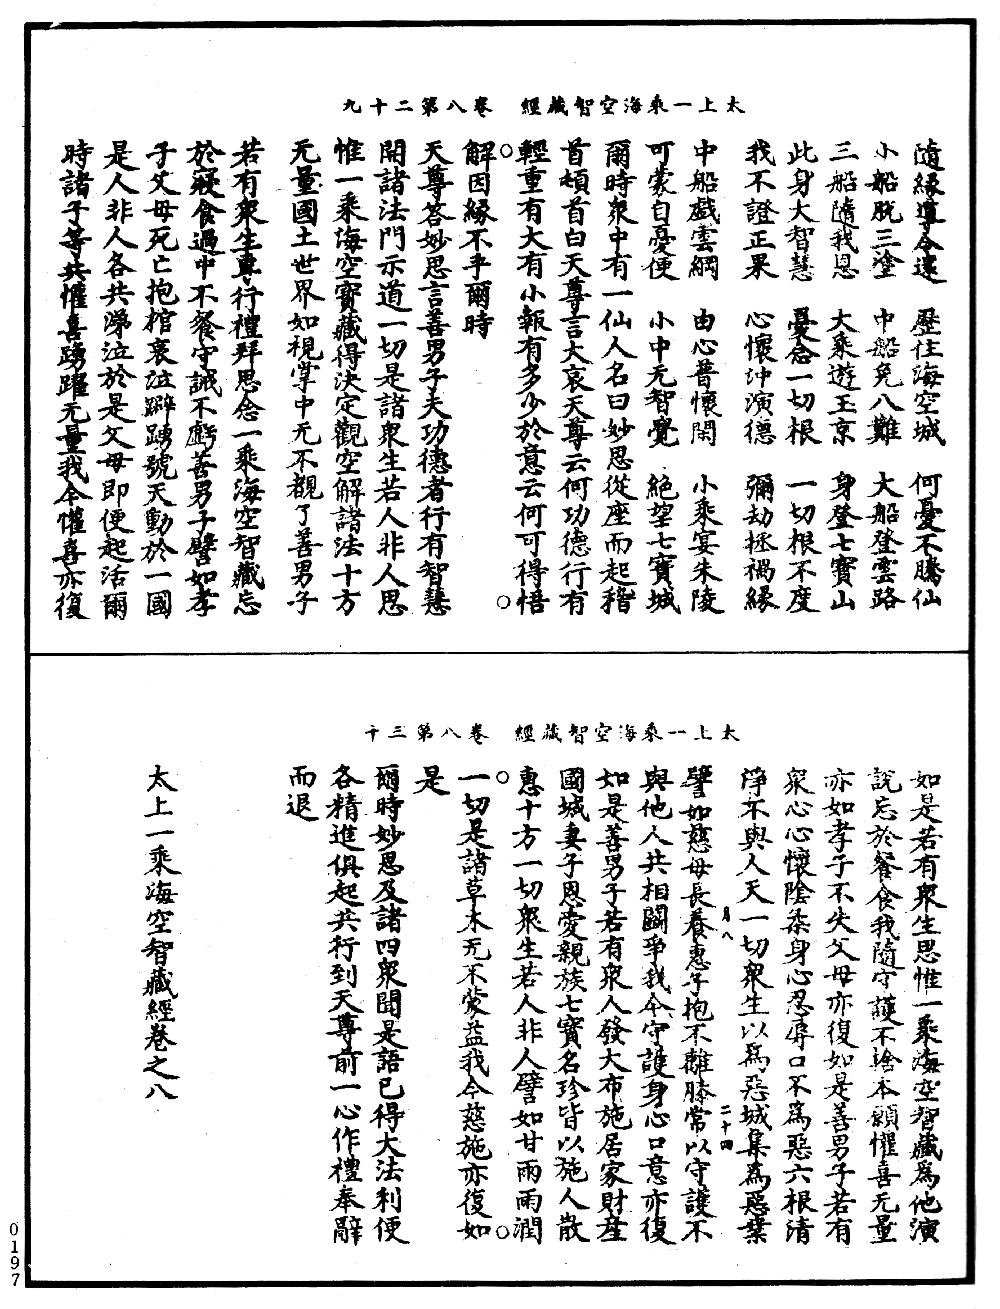 太上一乘海空智藏經　卷八第二十九
隨緣導令還　歷住海空城　何憂不騰仙
小船脫三塗　中船免八難　大船登雲路
三船隨我恩　大乘遊玉京　身登七寶山
此身大智慧　憂念一切根　一切根不度
我不證正果　心懷沖演德　彌劫拯禍緣
中船戲雲綱　由心普懷閑　小乘宴朱陵
可蒙自憂便　小中无智覺　絕望七寶城
爾時衆中有一仙人名曰妙思從座而起稽
首頓首白天尊言大哀天尊云何功德行有
輕重有大有小報有多少於意云何可得悟
解因緣不乎爾時
天尊答妙思言善男子夫功德者行有智慧
開諸法門示道一切是諸衆生若人非人思
惟一乘海空寶藏得決定觀空解諸法十方
无量國土世界如視掌中无不覩了善男子
若有衆生專行禮拜思念一乘海空智藏忘
於寢食過中不餐守誡不虧善男子譬如孝
子父母死亡抱棺哀泣擗踴號天動於一國
是人非人各共涕泣於是父母即便起活爾
時諸子等共懽喜踴躍无量我今懽喜亦復
太上一乘海空智藏經　卷八第三十
如是若有衆生思惟一乘海空智藏爲他演
說忘於餐食我隨守護不捨本願懽喜无量
亦如孝子不失父母亦復如是善男子若有
衆心心懷陰柔身心忍辱口不爲惡六根清
淨不與人天一切衆生以爲惡城集爲惡業
月八　二十四
譬如慈母長養惠子抱不離膝常以守護不
與他人共相鬪爭我今守護身心口意亦復
如是善男子若有衆人發大布施居家財産
國城妻子恩愛親族七寶名珍皆以施人散
惠十方一切衆生若人非人譬如甘雨雨潤
一切是諸草木无不蒙益我今慈施亦復如
是
爾時妙思及諸四衆聞是語已得大法利便
各精進俱起共行到天尊前一心作禮奉辭
而退
太上一乘海空智藏經卷之八
0197